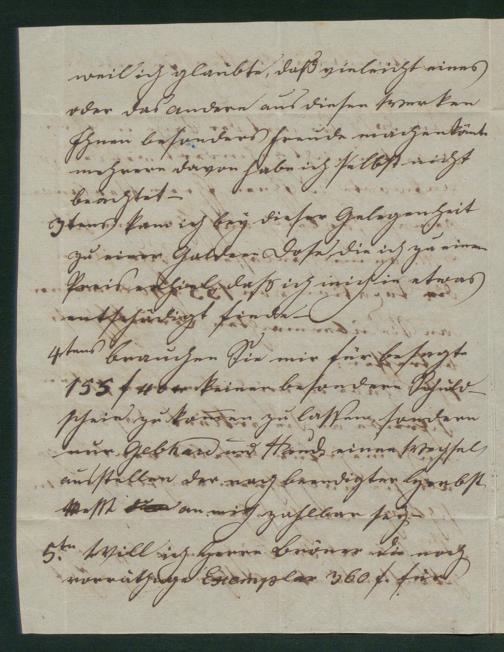 weil ich glaubte, daß vieleicht eines
oder das andere aus diesen Werken
Ihnen besonders Freude machen könte
mehrere davon habe ich selbst nicht
3tens kam ich bey dieser Gelegenheit
zu einer Goldenen Dose, die ich zu einem
Preis erhielt daß ich mich in etwas
entschädigt finde
4tens brauchen Sie mir für besagte
155 f 40 xr keinen besondern Schuld-
schein zukommen zu lassen, sondern
nur Gebhard und einen Wechsel
ausstellen der nach beendigter Herbst
Mess an mich zahlbar sey
5tn Will ich Herrn Brönner die noch
vorräthige Exemplar 360 f. für